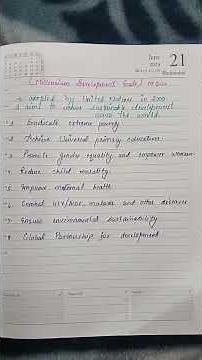 June
21
Millennium Development Goals / MDGs
adopted by United Nations in 2000
aim to reduce sustainable development
across the world.
Eradicate extreme poverty
Achieve Universal primary education
Promote gender equality and empower women
Reduce child mortality
Improve maternal health
Combat HIV/AIDS, malaria and other diseases
Ensure environmental sustainability
Global Partnership for development